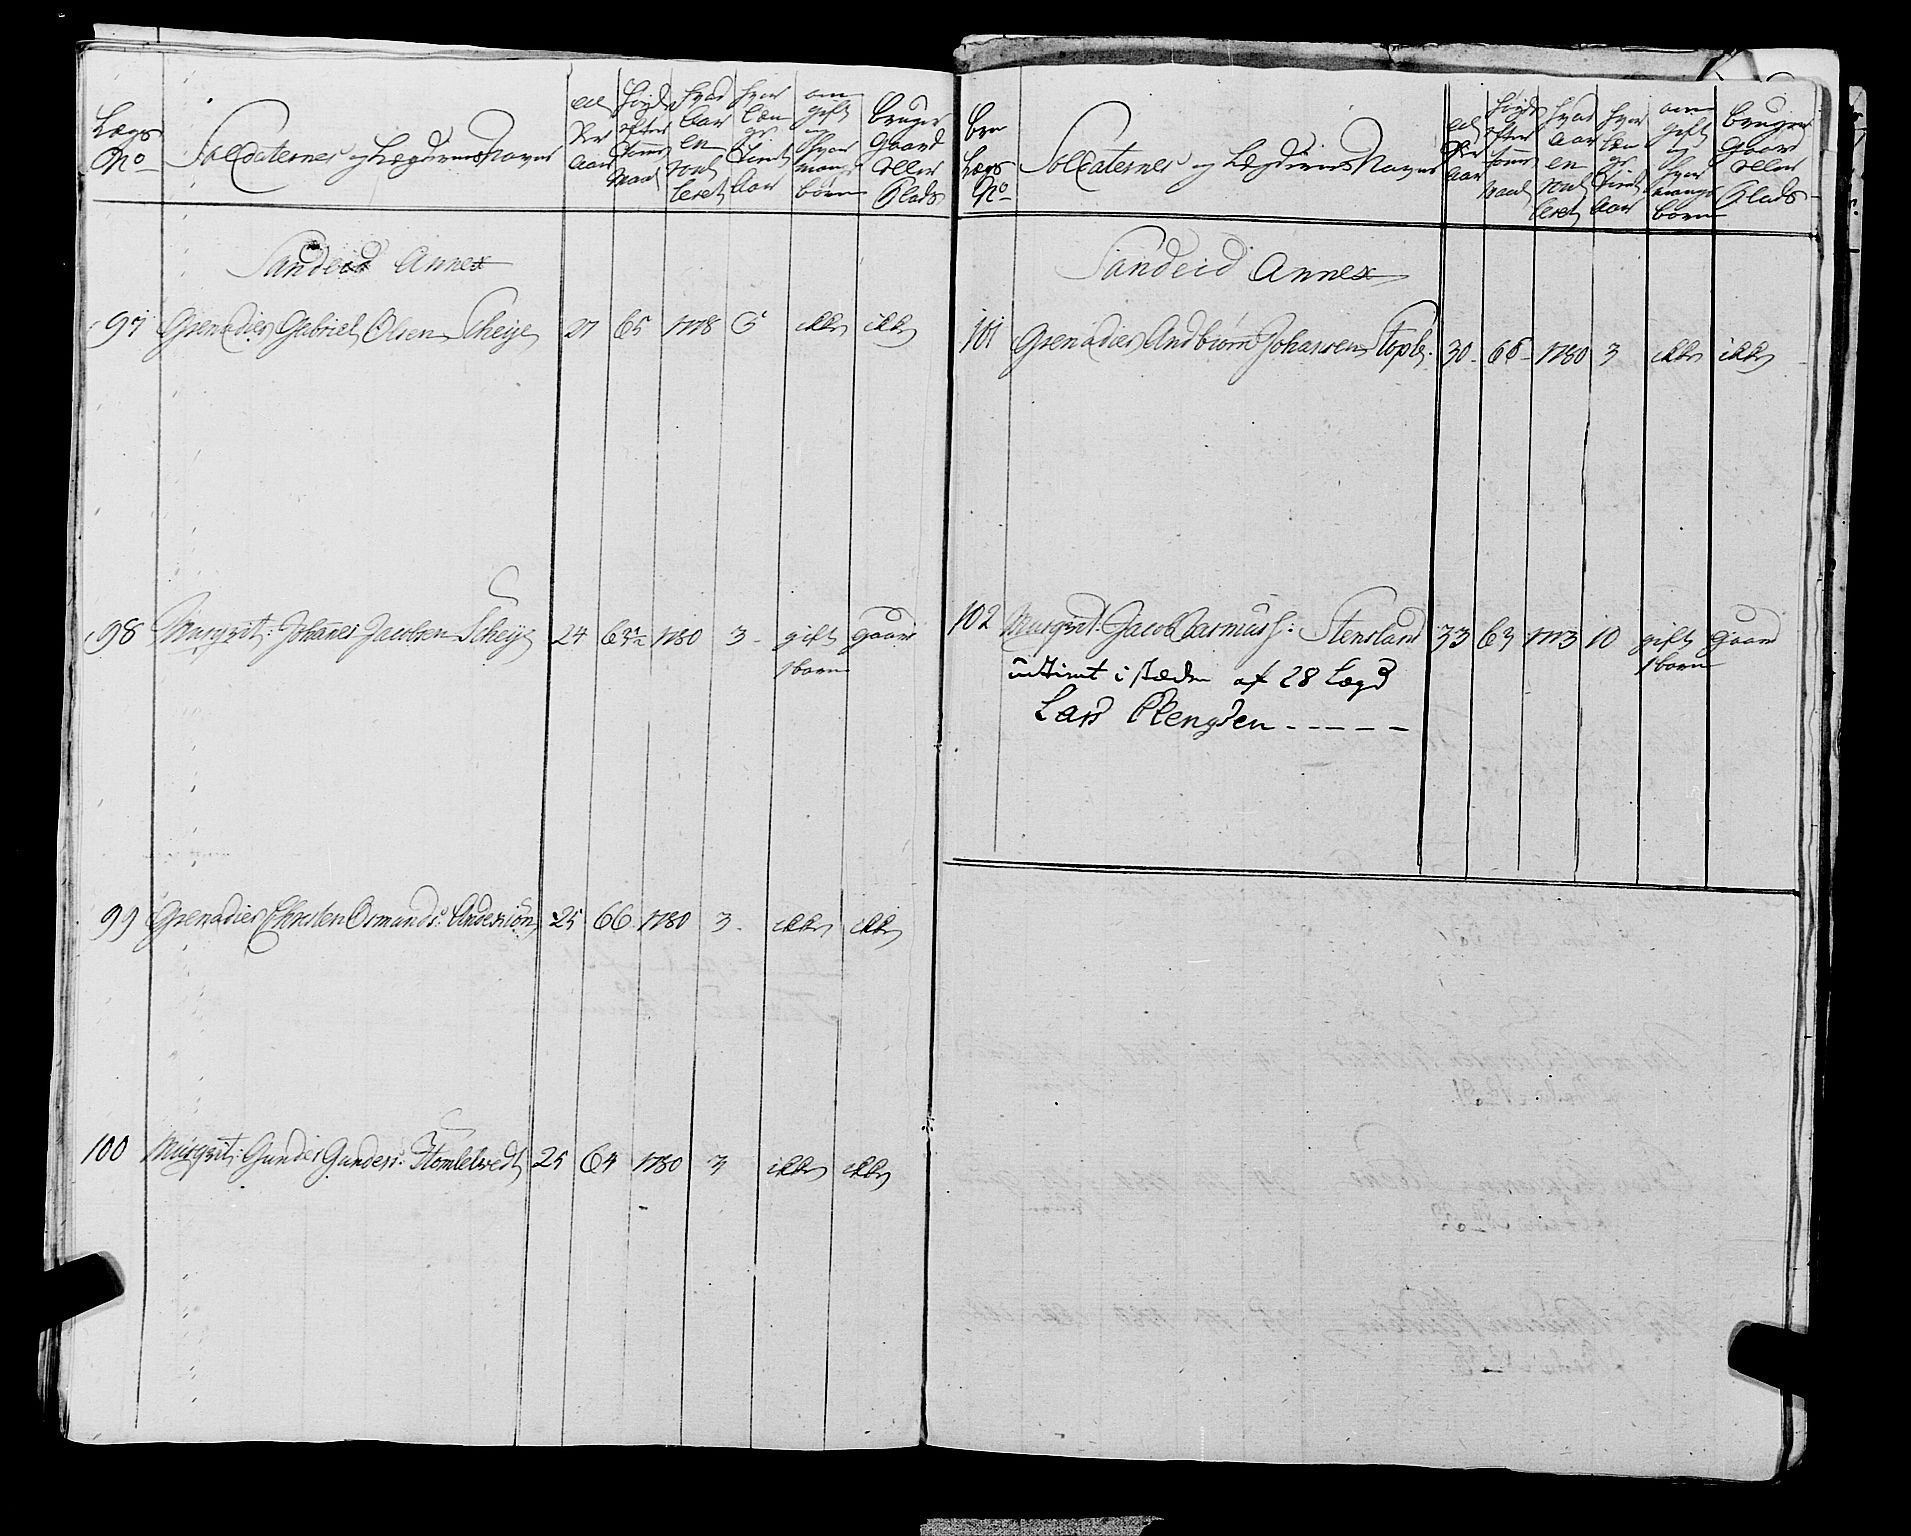 Lægs No
Soldaternes og Lægdernes Navne
Alder Aar
Høyde efter Tomme Maal
hvad Aar enrouleret
hvor længe tient Aar
om gift og hvor mange børn
bruger Gaard eller Plads
Sandeid Annex
97 Grenadier Gabriel Olsen Scheije 27 65 1778 5 ikke ikke
98 Musqvet: Johanes Jacobsen Scheije 24 63½ 1780 3 gift gaard
1 barn
99 Grenadier Christen Osmunds: 25 66 1780 3 ikke ikke
100 Musqvet: Gunder Gunders: 25 64 1780 3 ikke ikke
Lægs No
Soldaternes og Lægdernes Navne
Alder Aar
Høyde efter Tomme Maal
hvad Aar enrouleret
hvor længe tient Aar
om gift og hvor mange børn
bruger Gaard eller Plads
Sandeid Annex
101 Grenadier Andbiørn Johansen 30 66 1780 3 ikke ikke
102 Musqvet: Jacob Rasmuss: Stensland 33 63 1773 10 gift gaard
1 barn
udtient i stæden af 28 Lægd
Lars